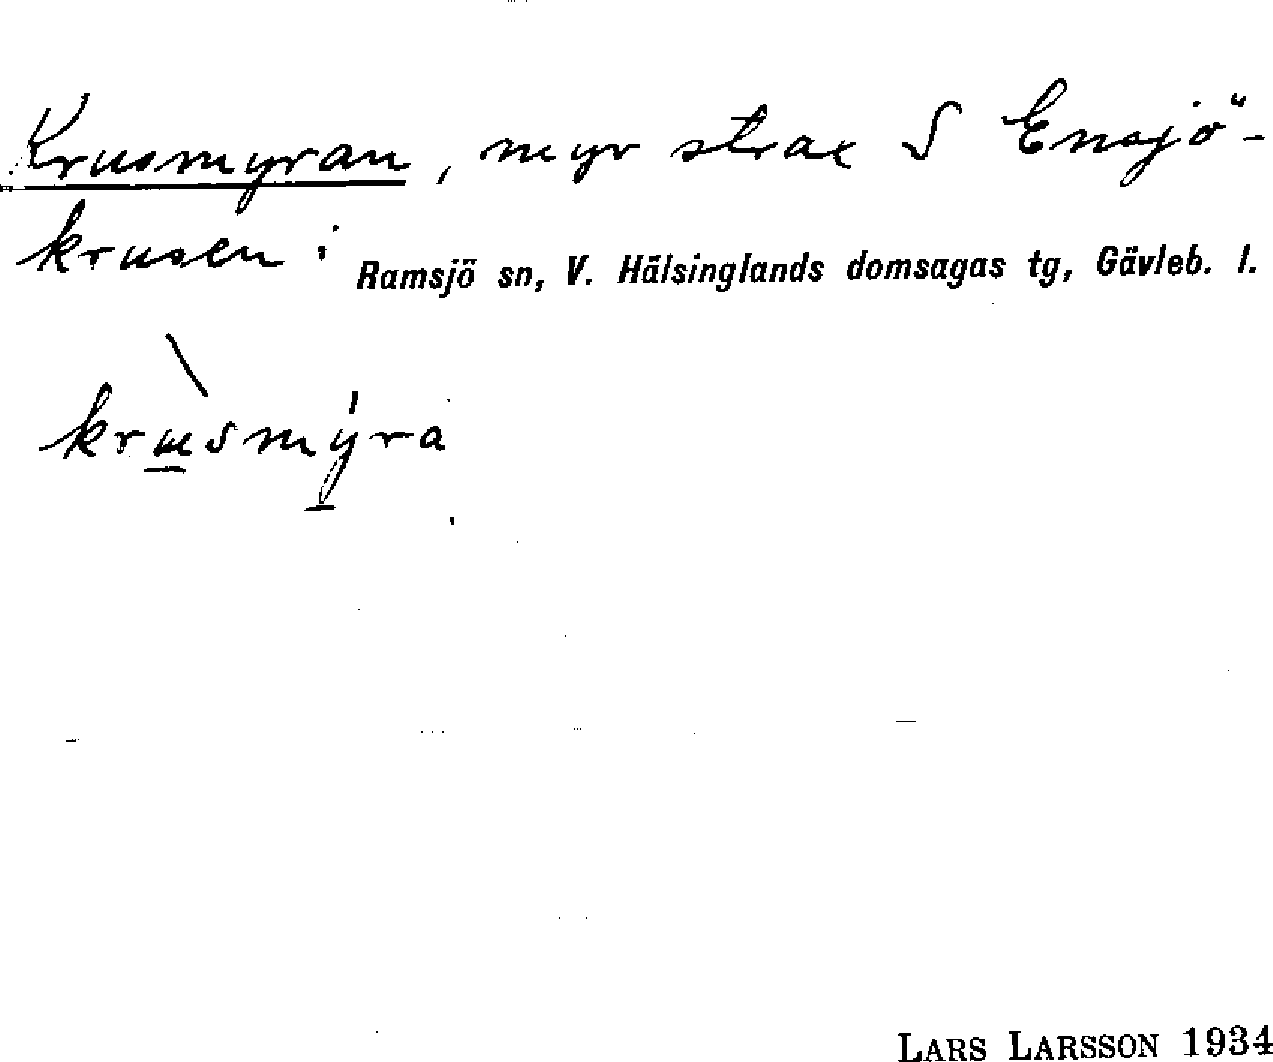 Krusmyran, myr strax S Ensjö-
krusen i Ramsjö sn, V. Hälsinglands domsagas tg, Gävleb. l.
krùsmýra
LARS LARSSON 1934